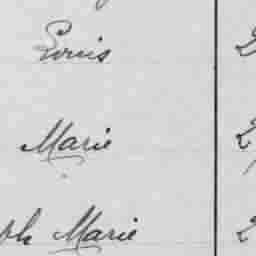 Louis
Marie
ph Marie